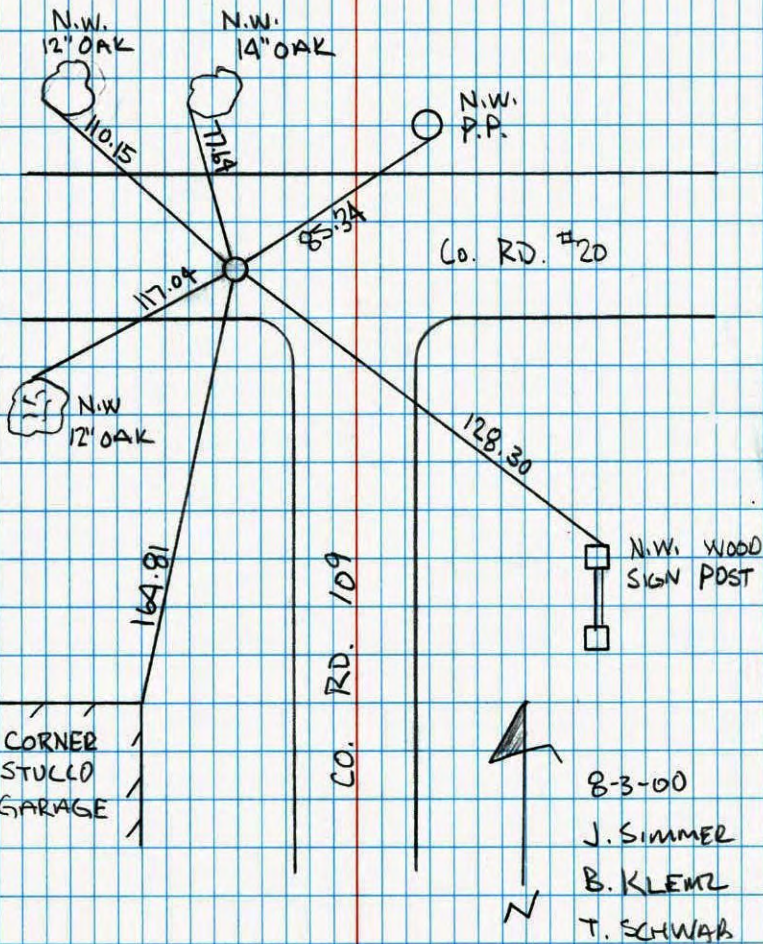 N.W.
12" OAK
N.W.
14" OAK
N.W.
P.P.
110.15
77.64
85.34
CO. RD. #20
117.04
N.W
12" OAK
128.30
164.81
CO. RD. 109
N.W. WOOD
SIGN POST
CORNER
STUCCO
GARAGE
N
8-3-00
J. SIMMER
B. KLEMZ
T. SCHWAB